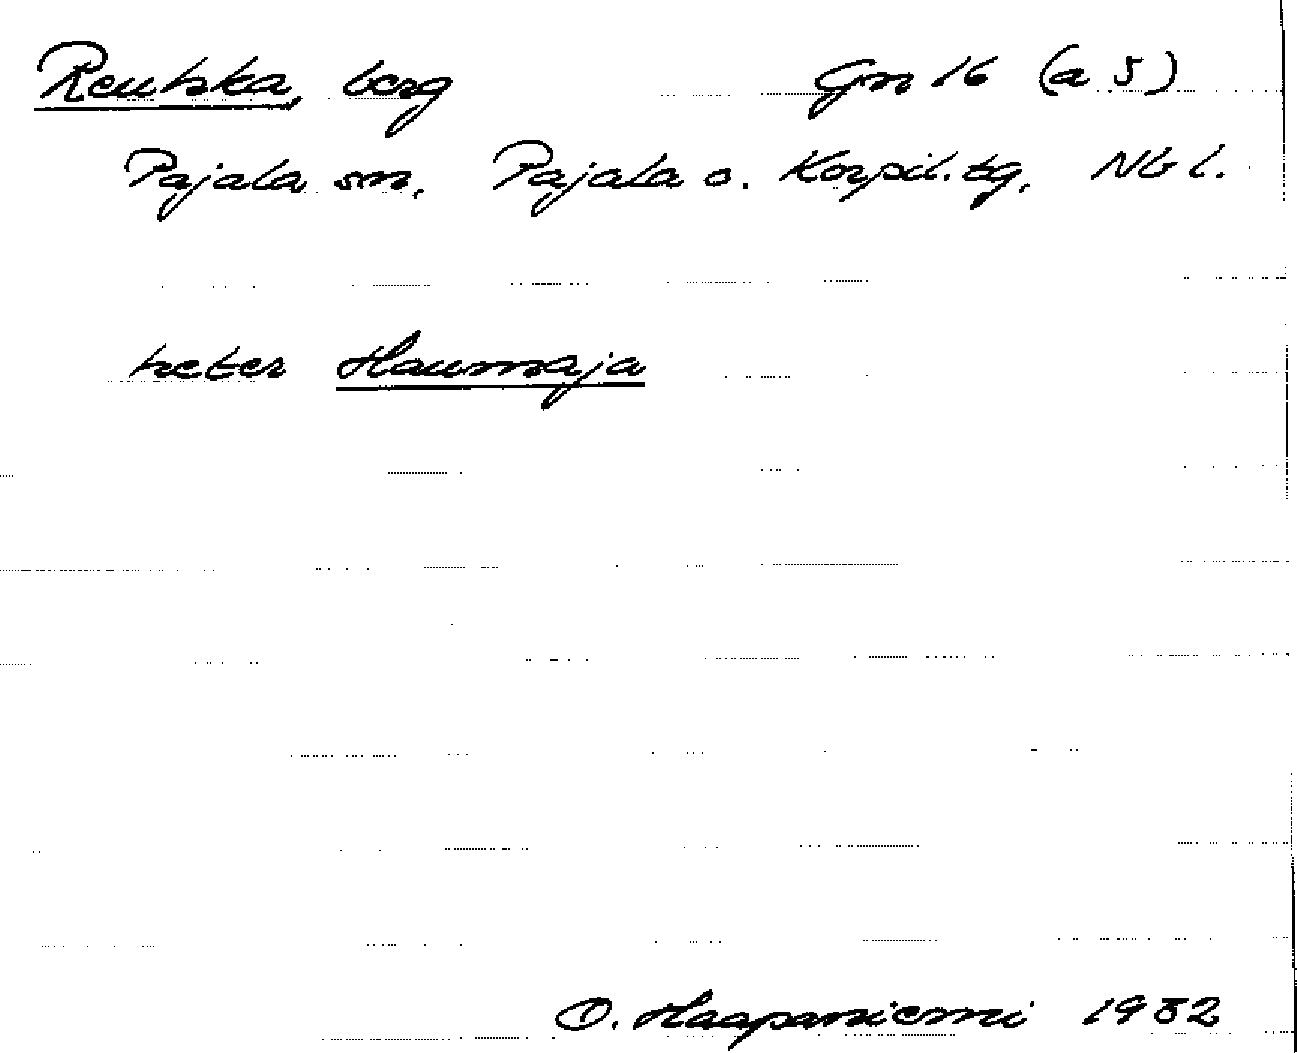 Reuhka, berg Gn 16 (a 5)
Pajala sn, Pajala o. Korpil. tg, Nb l.
heter Haumaja
O. Haapaniemi 1982